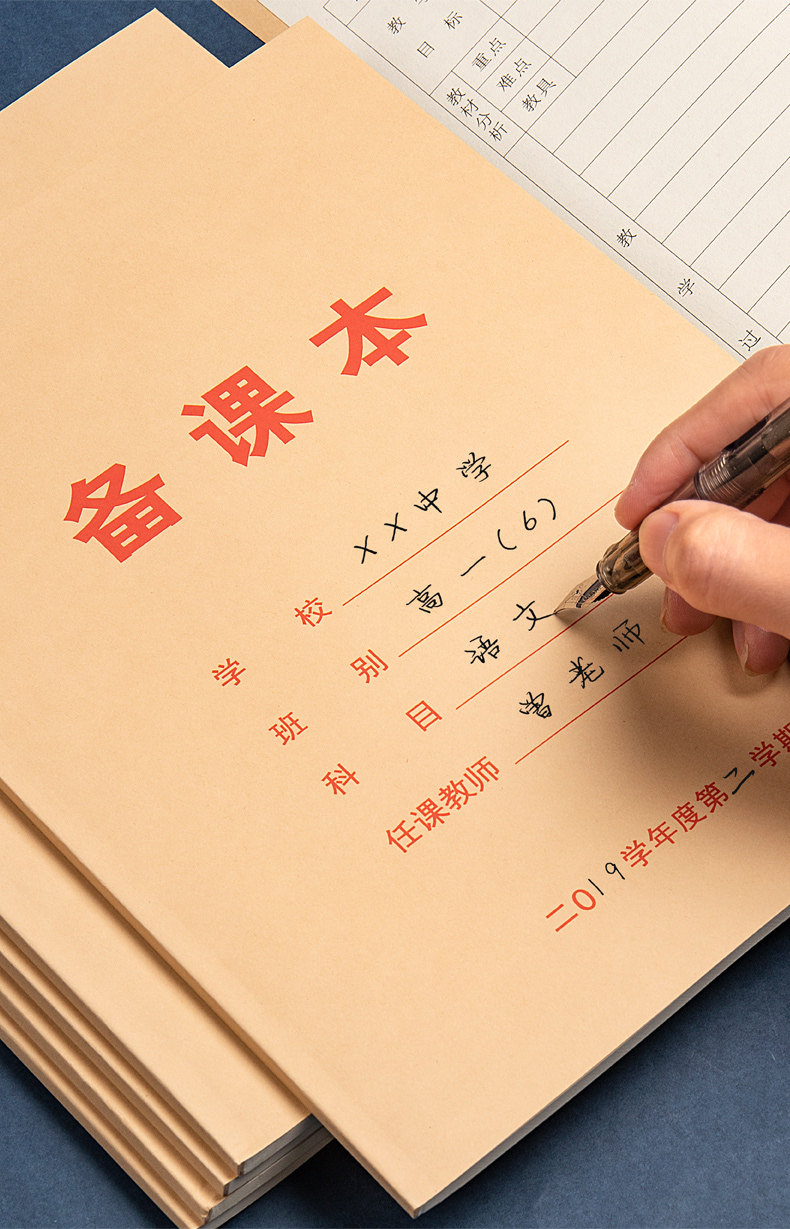 备课本
学校 XX中学
班别 高一(6)
科目 语文
任课教师 曾老师
二〇19学年度第二学期
教学目标
重点
难点
教材分析
教具
教学过